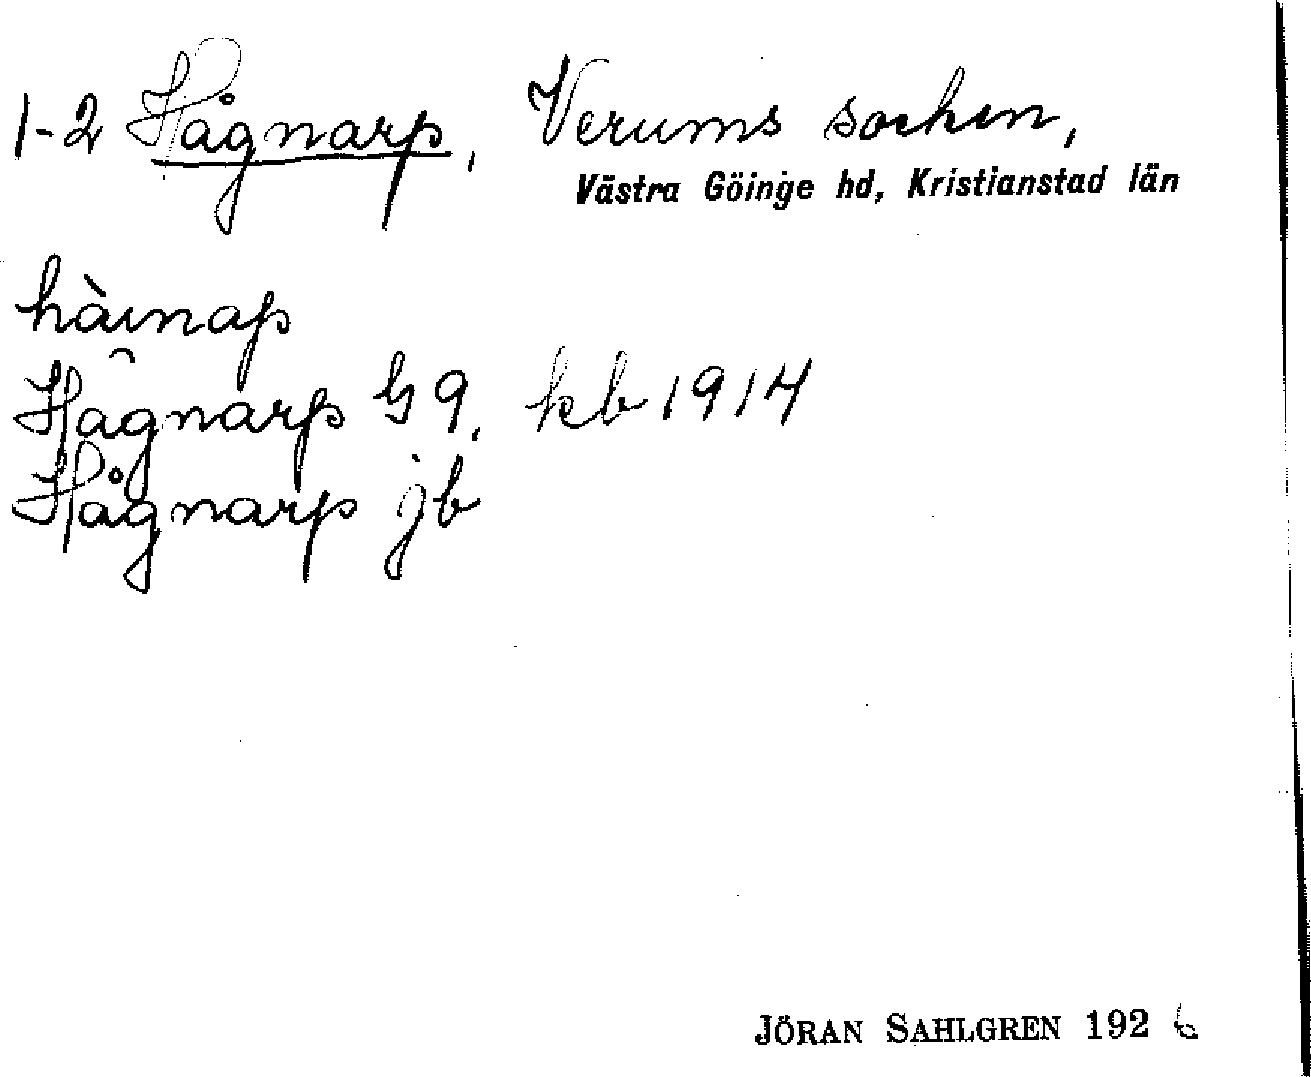 1-2 Hågnarp, Verums socken,
Västra Göinge hd, Kristianstad län
hàınap
Hågnarp G 9, kb 1914
Hågnarp jb
JÖRAN SAHLGREN 1926